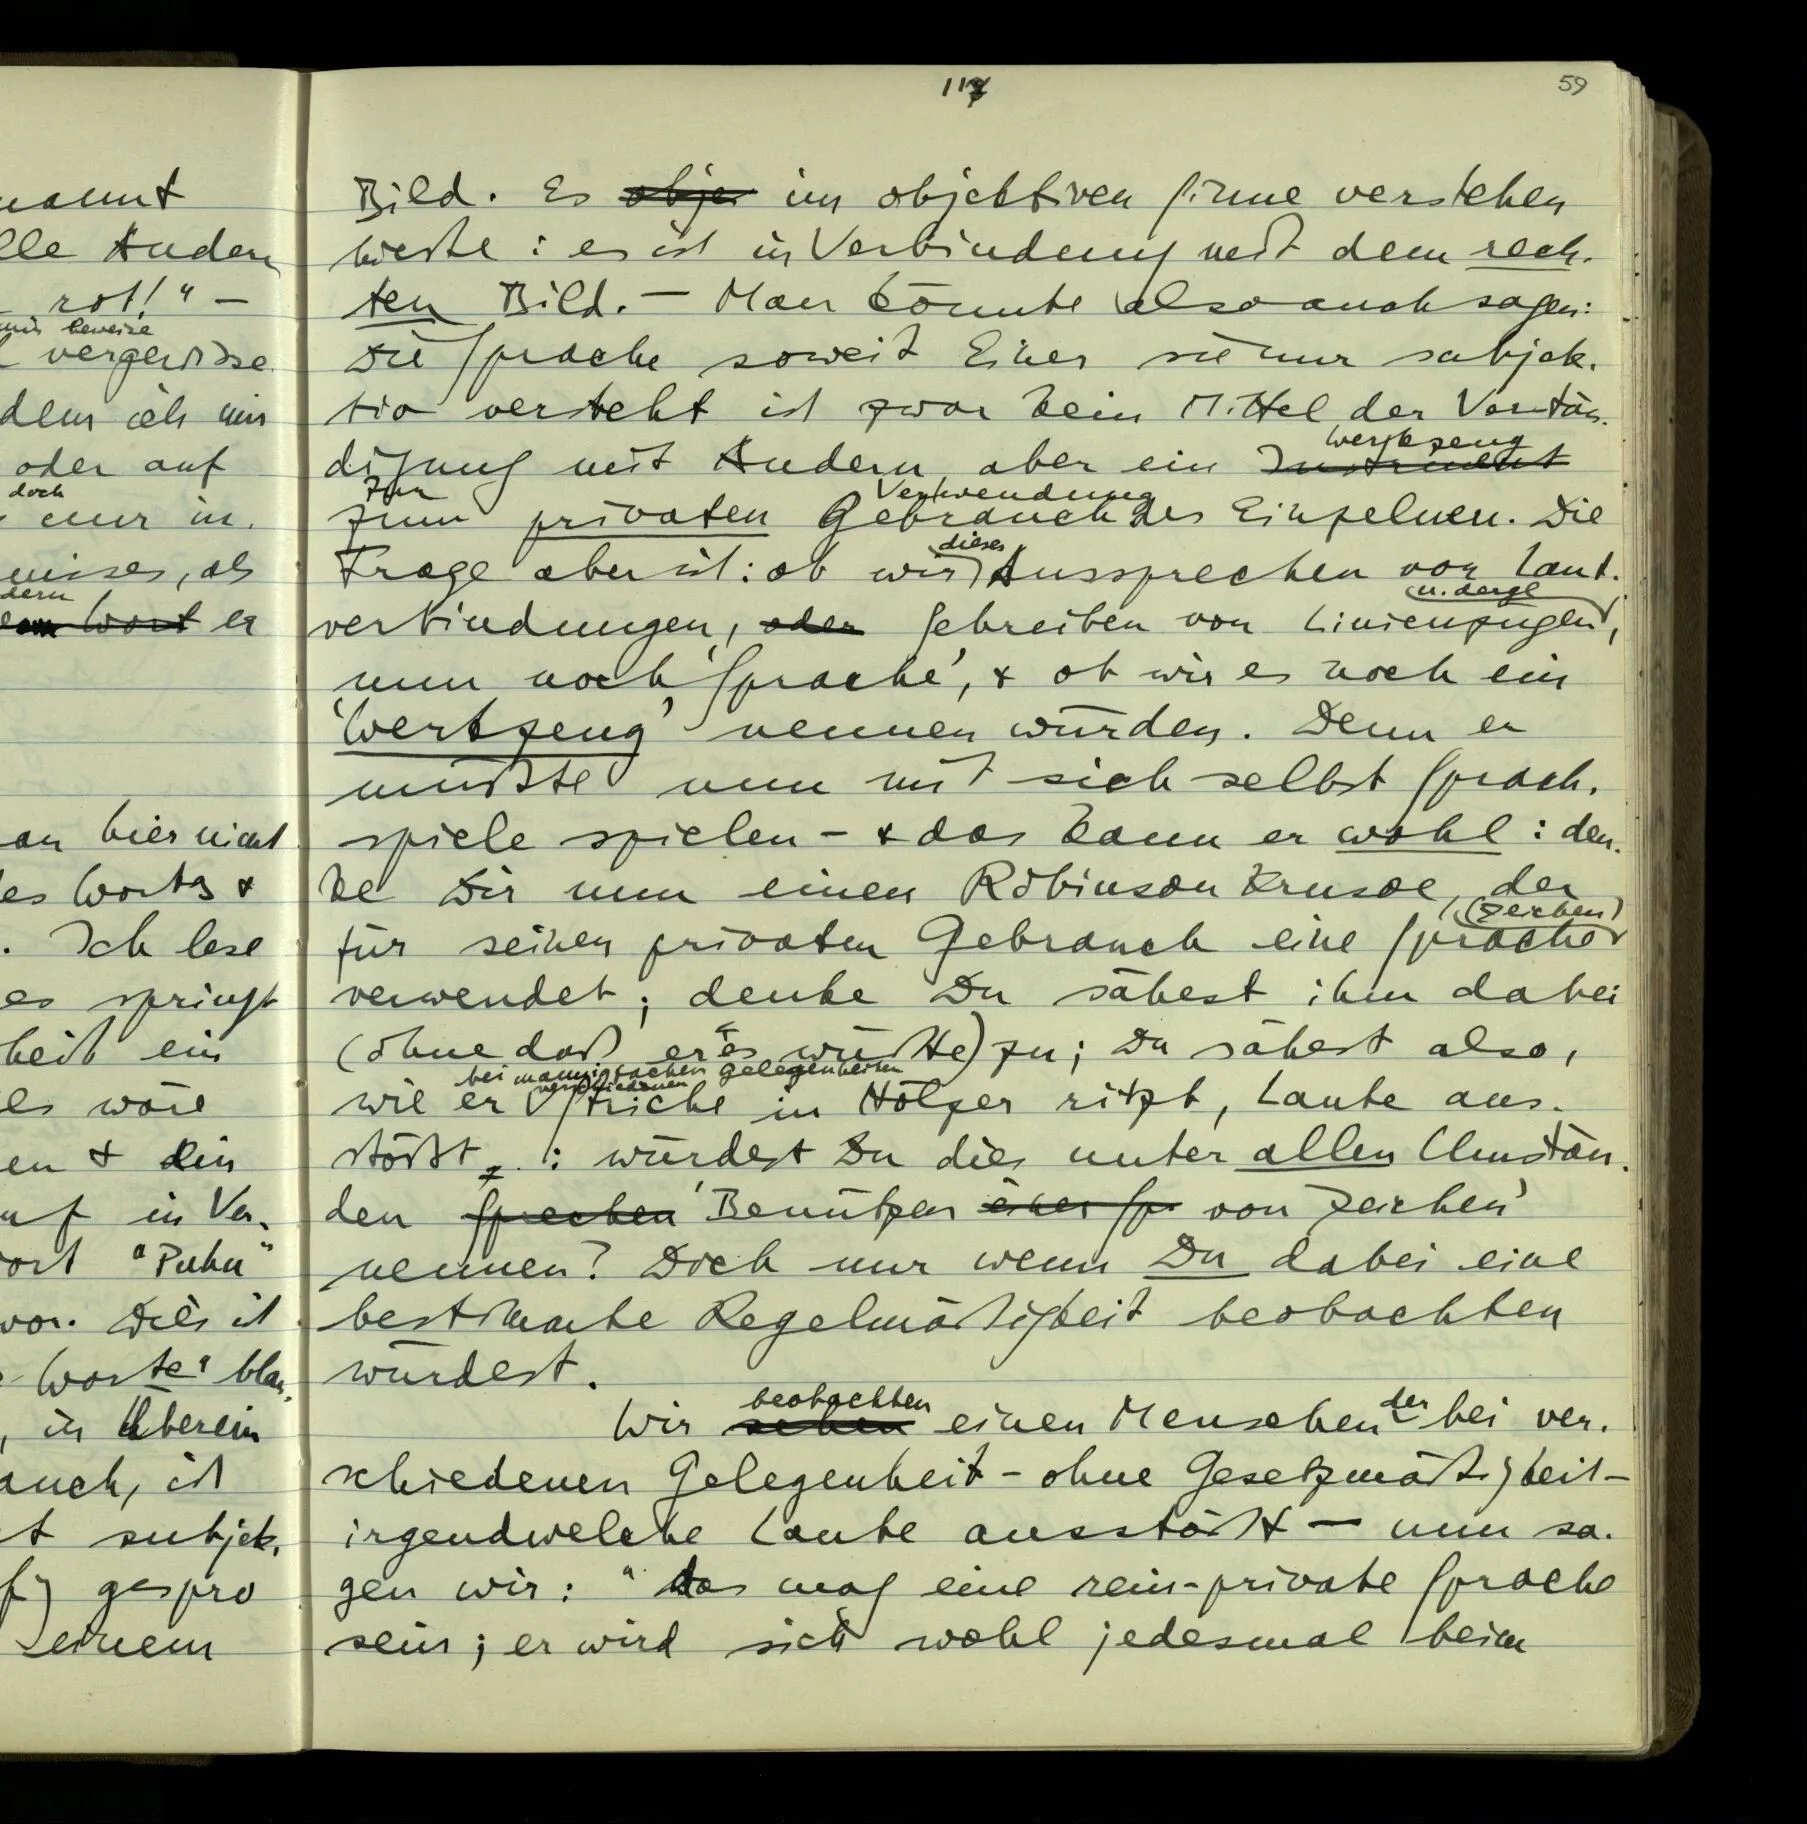 117
59
namt
lle Andern
rot!" –
mir beweise
vergewisse
dem ich mir
oder auf
doch
nur in.
nisses, als
dern
Wort er
an hier nicht
es Worts &
. Ich lese
es springt
heit ein
es wäre
en & ein
uf in Ver-
ort "Puhu"
vor. Dies ist
Worte" blau,
, in Überein
auch, ist
t subjek,
gespro
einem
Bild. Es obje im objektiven Sinne verstehen
hieße: es ist in Verbindung mit dem rech-
ten Bild. – Man könnte also auch sagen:
Die Sprache soweit Einer sie nur subjek-
tiv versteht ist zwar kein Mittel der Verstän-
Werkzeug
digung mit Andern aber ein Instrument
zur Verwendung
zum privaten Gebrauch des Einzelnen. Die
dieses
Frage aber ist: ob wir Aussprechen von Laut-
u. dergl
verbindungen, oder Schreiben von Linienzügen,
nun noch 'Sprache', & ob wir es noch ein
'Werkzeug' nennen würden. Denn er
müßte nun mit sich selbst Sprach-
spiele spielen – & das kann er wohl: den-
ke Dir nun einen Robinson Krusoe, der
(Zeichen)
für seinen privaten Gebrauch eine Sprache
verwendet; denke Du sähest ihm dabei
(ohne daß er es wüßte) zu; Du sähest also,
bei mannigfachen Gelegenheiten
verschiedenen
wie er Striche in Hölzer ritzt, Laute aus-
stößt : würdest Du dies unter allen Umstän-
den Sprechen 'Benützen einer Sp von Zeichen'
nennen? Doch nur wenn Du dabei eine
bestimmte Regelmäßigkeit beobachten
würdest.
beobachten der
Wir sehen einen Menschen bei ver-
schiedenen Gelegenheit – ohne Gesetzmäßigkeit –
irgendwelche Laute ausstößt – nun sa-
gen wir: "das mag eine rein-private Sprache
sein; er wird sich wohl jedesmal beim